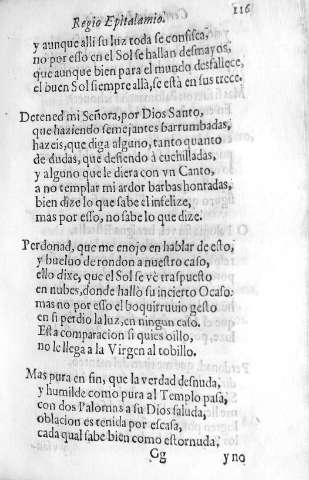 Regio Epitalamio. 116
y aunque alli su luz toda se confisca,
no por esso en el Sol se hallan desmayos,
que aunque bien para el mundo desfallece,
el buen Sol siempre allà, se està en sus trece.
Detened mi Señora, por Dios Santo,
que haziendo semejantes barrumbadas,
hazeis, que diga alguno, tanto quanto
de dudas, que defiendo à cuchilladas,
y alguno que le diera con vn Canto,
a no templar mi ardor barbas honradas,
bien dize lo que sabe el infelize,
mas por esso, no sabe lo que dize.
Perdonad, que me enojo en hablar de esto,
y bueluo de rondon a nuestro caso,
ello dixe, que el Sol se vè traspuesto
en nubes, donde hallò su incierto Ocaso:
mas no por esso el boquirruuio gesto
en si perdio la luz, en ningun caso.
Esta comparacion si quies oillo,
no le llega a la Virgen al tobillo.
Mas pura en fin, que la verdad desnuda,
y humilde como pura al Templo passa,
con dos Palomas a su Dios saluda,
oblacion es tenida por escasa,
cada qual sabe bien como estornuda,
Gg y no